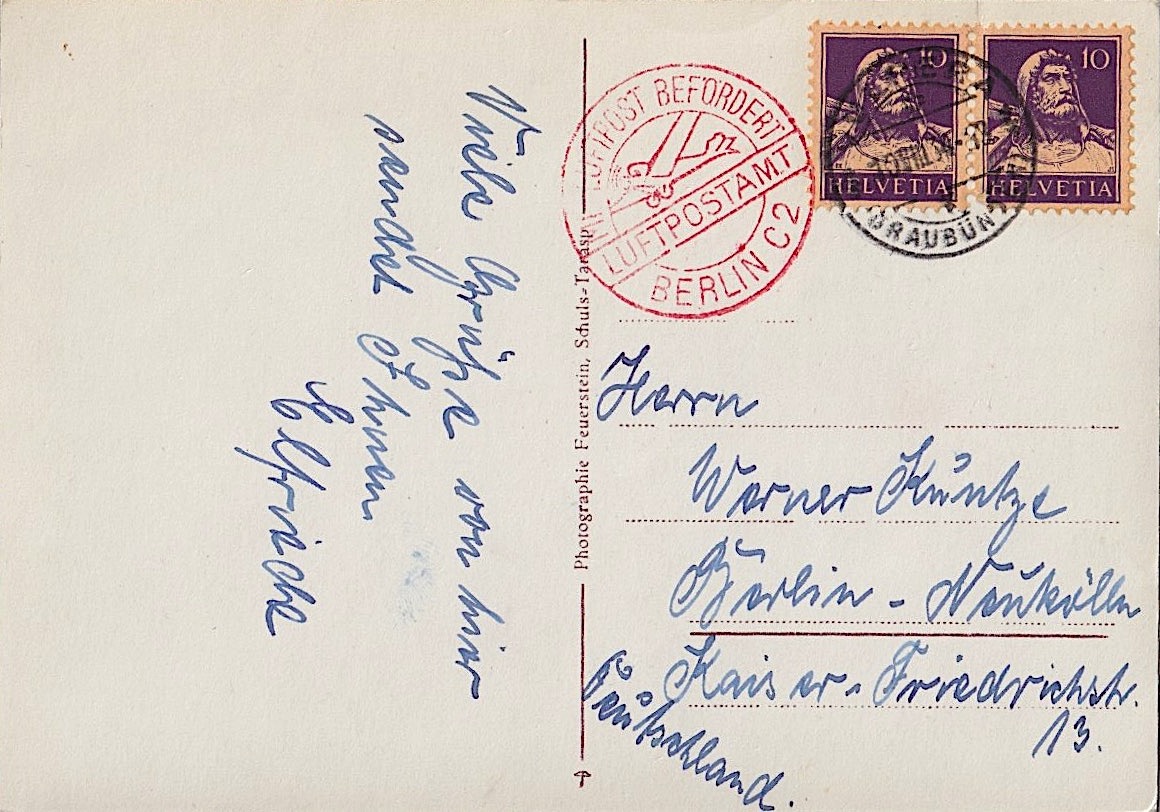 Viele Grüße von hier
sendet Ihnen
Elfriede
Photographie Feuerstein, Schuls-Tarasp
MIT LUFTPOST BEFÖRDERT
LUFTPOSTAMT
BERLIN C2
10
HELVETIA
10
HELVETIA
GRAUBÜN
Herrn
Werner Küntze
Berlin - Neukölln
Kaiser-Friedrichstr.
13.
Deutschland.